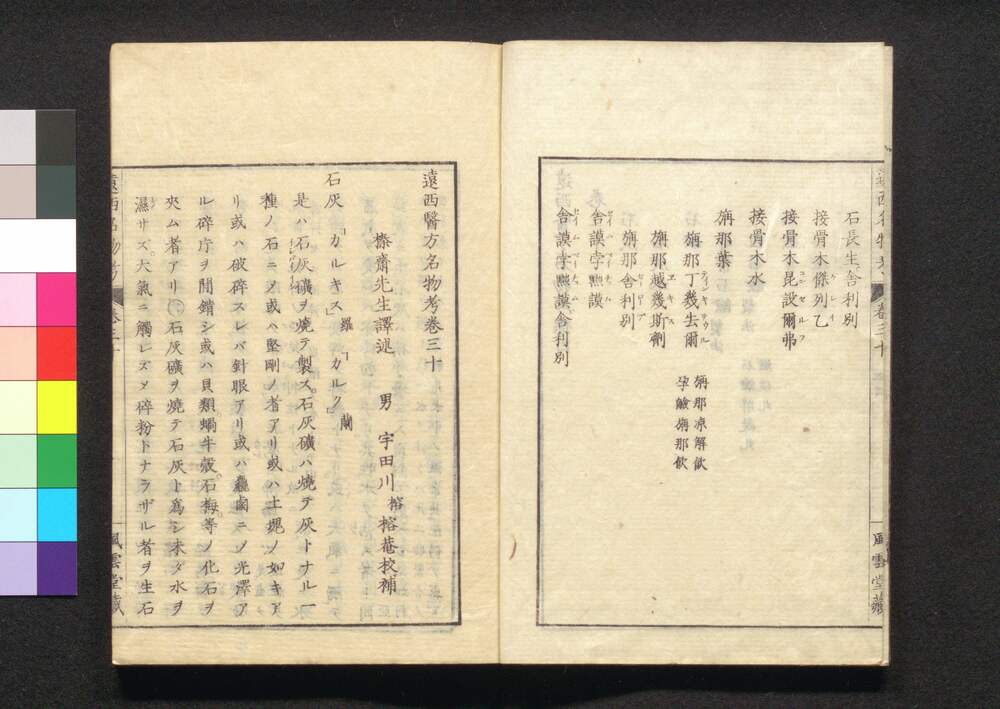 石長生舎利別
接骨木傑列乙
接骨木昆設爾弗
接骨木水
旃那葉
旃那丁幾去爾 旃那凉解飲
旃那越幾斯劑 孕鹸旃那飲
旃那舎利別
舎謨孛㷱謨
舎謨孛㷱謨舎利別
風雲堂藏
遠西醫方名物考卷三十
榛齋先生譯述 男 宇田川 榕 榕菴校補
石灰「カルキス」羅「カルク」蘭
是ハ石灰礦ヲ燒テ製ス。石灰礦ハ燒テ灰トナル一
種ノ石ニメ或ハ堅剛ノ者アリ或ハ土塊ノ如キア
リ或ハ破碎スレバ針眼アリ或ハ麤鹵ニメ光澤ア
ル碎庁ヲ間鎖シ或ハ貝類蝸牛殼。石梅等ノ化石ヲ
夾ム者アリ○石灰礦ヲ燒テ石灰ト爲シ未ダ水ヲ
濕サズ。大氣ニ觸レズメ碎粉トナラザル者ヲ生石
遠西名物考 卷三十
風雲堂藏